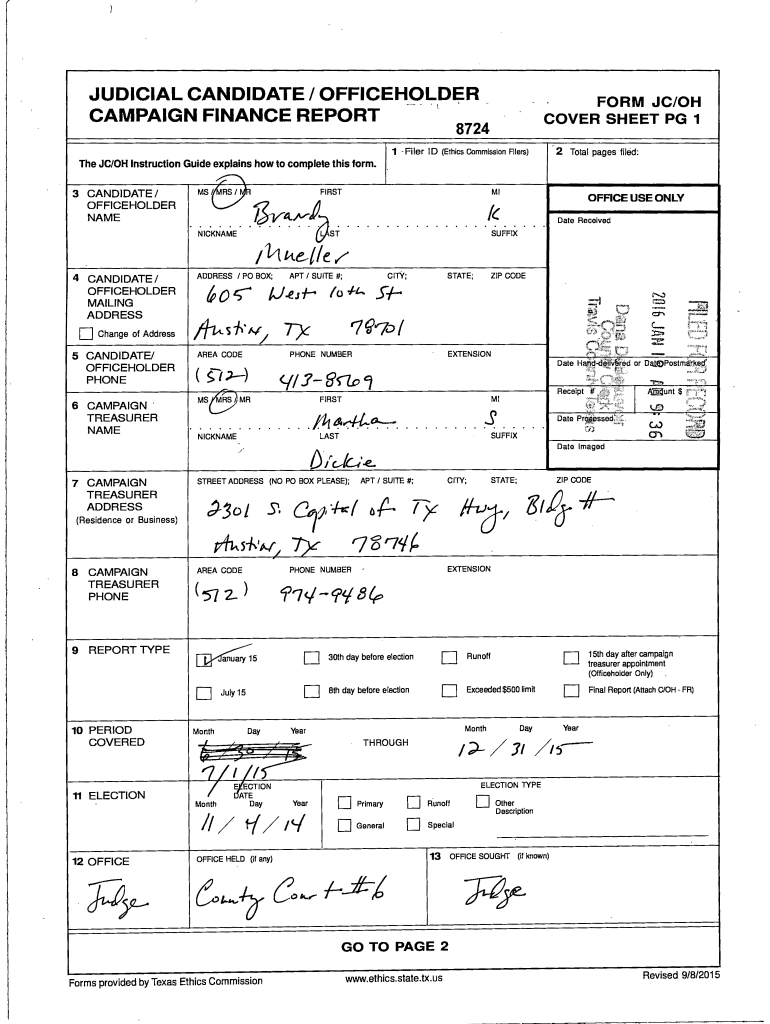 JUDICIAL CANDIDATE / OFFICEHOLDER
CAMPAIGN FINANCE REPORT
8724
FORM JC/OH
COVER SHEET PG 1
The JC/OH Instruction Guide explains how to complete this form.
1 Filer ID (Ethics Commission Filers)
2 Total pages filed:
3 CANDIDATE / OFFICEHOLDER NAME
MS / MRS / MR FIRST MI
Brandy K
NICKNAME LAST SUFFIX
Mueller
OFFICE USE ONLY
Date Received
FILED FOR RECORD
2016 JAN 1 A 9:36
County Clerk
Travis County Texas
Date Hand-delivered or Date Postmarked
Receipt # Amount $
Date Processed
Date Imaged
4 CANDIDATE / OFFICEHOLDER MAILING ADDRESS
Change of Address
ADDRESS / PO BOX; APT / SUITE #; CITY; STATE; ZIP CODE
605 West 10th St
Austin, TX 78701
5 CANDIDATE/ OFFICEHOLDER PHONE
AREA CODE PHONE NUMBER EXTENSION
(512) 413-8569
6 CAMPAIGN TREASURER NAME
MS / MRS / MR FIRST MI
Martha S
NICKNAME LAST SUFFIX
Dickie
7 CAMPAIGN TREASURER ADDRESS
(Residence or Business)
STREET ADDRESS (NO PO BOX PLEASE); APT / SUITE #; CITY; STATE; ZIP CODE
2301 S. Capital of TX Hwy, Bldg H
Austin, TX 78746
8 CAMPAIGN TREASURER PHONE
AREA CODE PHONE NUMBER EXTENSION
(512) 974-9486
9 REPORT TYPE
January 15 30th day before election Runoff 15th day after campaign treasurer appointment (Officeholder Only)
July 15 8th day before election Exceeded $500 limit Final Report (Attach C/OH - FR)
10 PERIOD COVERED
Month Day Year THROUGH Month Day Year
6/30/15
7/1/15
12/31/15
11 ELECTION
ELECTION DATE
Month Day Year
11/4/14
ELECTION TYPE
Primary Runoff Other Description
General Special
12 OFFICE
Judge
OFFICE HELD (if any)
County Court #6
13 OFFICE SOUGHT (if known)
Judge
GO TO PAGE 2
Forms provided by Texas Ethics Commission www.ethics.state.tx.us Revised 9/8/2015